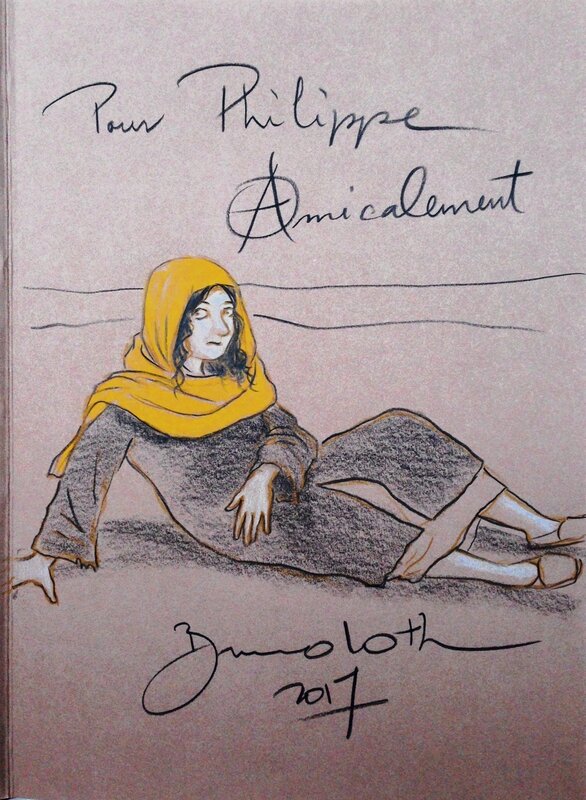 Pour Philippe
Amicalement
Bruno loth
2017